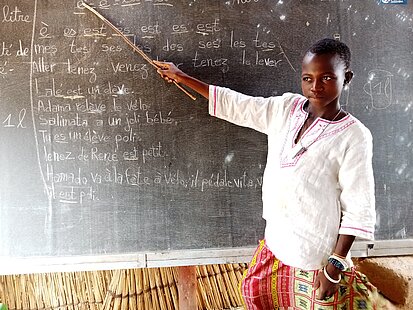 litre
è es est es est
mes tes ses des ses les
Aller tenez Venez tenez lever
é-
Lale est un élève.
Adama relève le vélo.
1 l Salimata a un joli bébé.
Tu es un élève poli.
René est petit.
Hamado va à la fête à vélo, il pédale vite,
Il est poli.